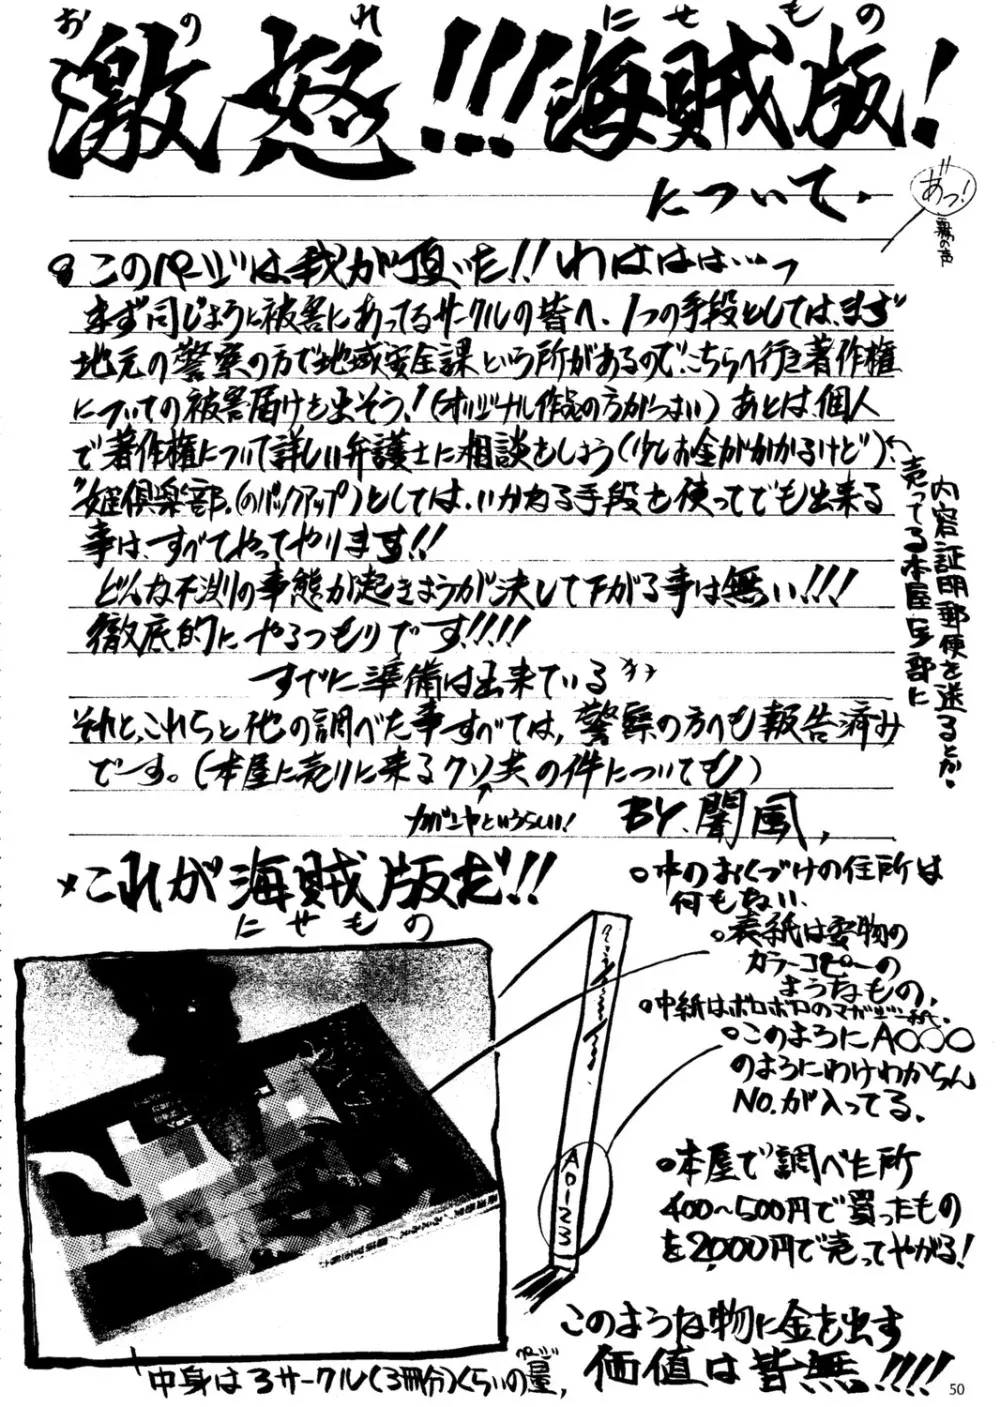 おのれ にせもの
激怒!!!海賊版!
について・
あっ!
霧の声
このページは我が頂いた!!わはははは…っ
まず同じように被害にあってるサークルの皆へ、1つの手段としては、まず
地元の警察の方で地域安全課という所があるので、こちらへ行き著作権
についての被害届けを出そう!(オリジナル作品の方がつよい)あとは、個人
で著作権について詳しい弁護士に相談をしよう(少しお金がかかるけど)
"姫倶楽部"(のバックアップ)としては、いかなる手段を使ってでも出来る
事は、すべてやってやります!!
どんな不測の事態が起きようが決して下がる事は無い!!!
徹底的にやるつもりです!!!!
すでに準備は出来ている
それと、これらと他の調べた事すべては、警察の方へも報告済み
でーす。(本屋に売りに来るクソ共の件についても)
BY.闇風,
内容証明郵便を送るとか。
売ってる本屋全部に
×これが海賊版だ!!
にせもの
中のおくづけの住所は
何もない、
表紙は安物の
カラーコピーの
ようなもの、
中紙はボロボロのマガジン
このようにA○○○
のようにわけわからん
NO.が入ってる、
A0123
本屋で調べた所
400〜500円で買ったもの
を2,000円で売ってやがる!
このような物に金を出す
価値は皆無!!!!
中身は3サークル(3冊分)くらいの量,
ページ
50